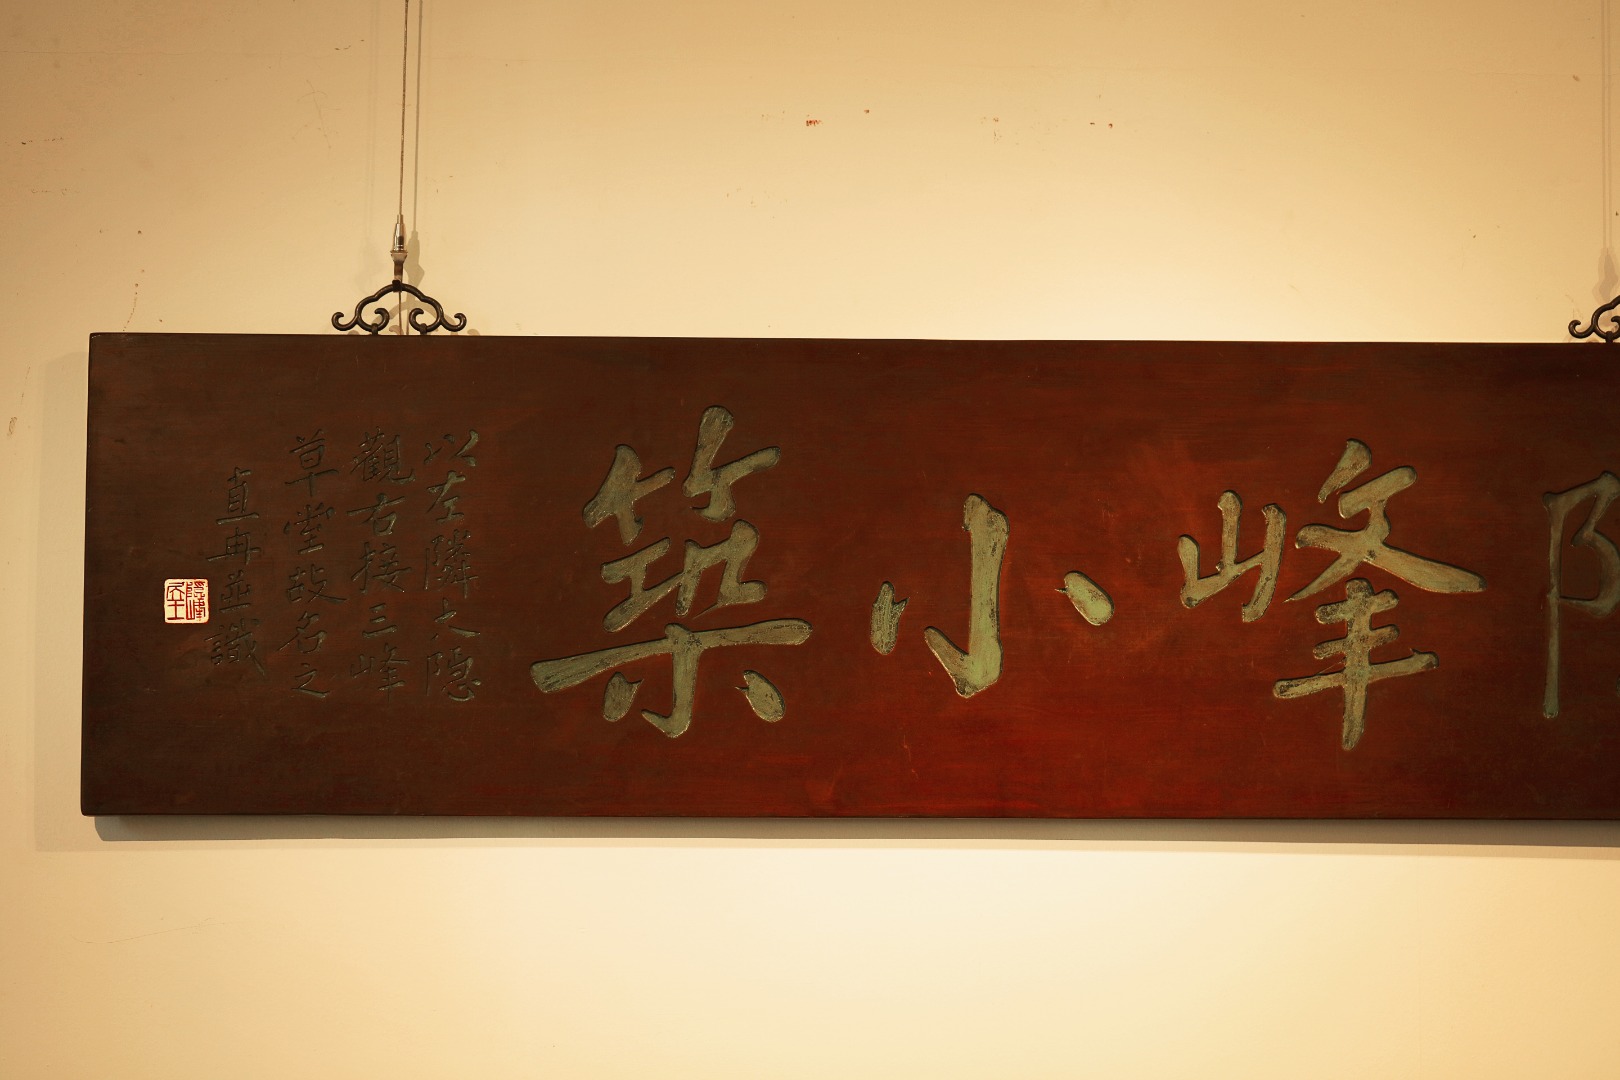 峰小築
以左隣大隠
觀右接三峰
草堂故名之
直冉並識